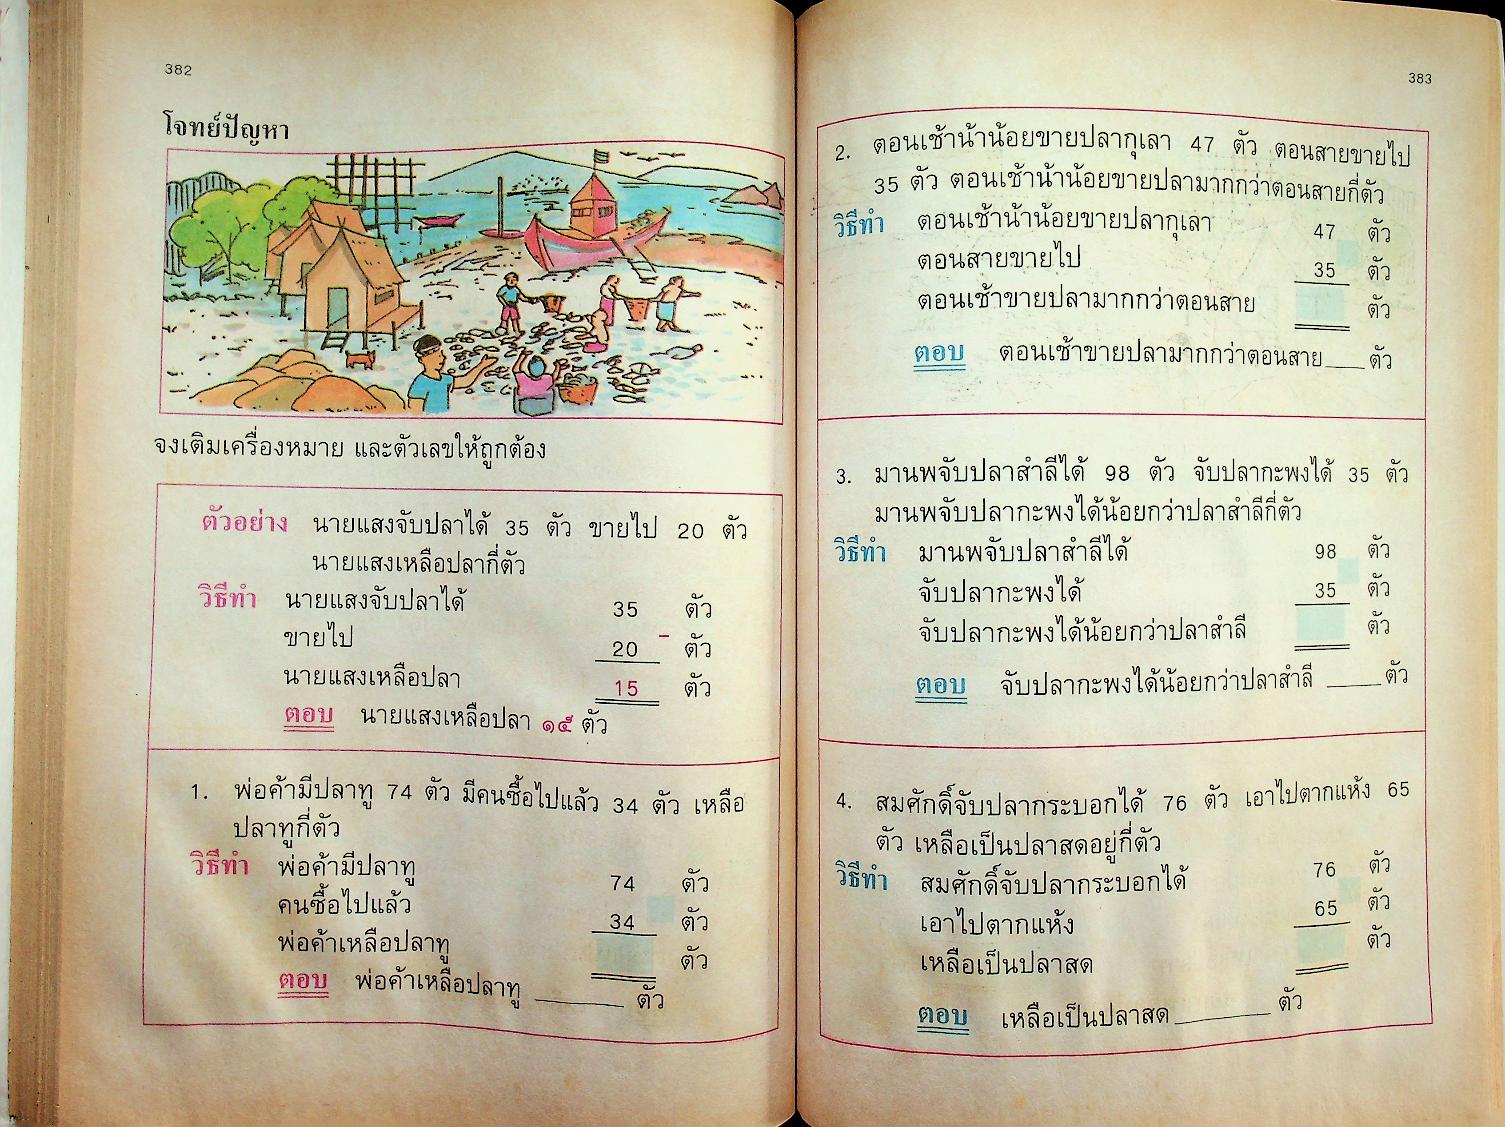 382
โจทย์ปัญหา
จงเติมเครื่องหมาย และตัวเลขให้ถูกต้อง
ตัวอย่าง นายแสงจับปลาได้ 35 ตัว ขายไป 20 ตัว
นายแสงเหลือปลากี่ตัว
วิธีทำ นายแสงจับปลาได้ 35 ตัว
ขายไป 20 - ตัว
นายแสงเหลือปลา 15 ตัว
ตอบ นายแสงเหลือปลา ๑๕ ตัว
1. พ่อค้ามีปลาทู 74 ตัว มีคนซื้อไปแล้ว 34 ตัว เหลือ
ปลาทูกี่ตัว
วิธีทำ พ่อค้ามีปลาทู 74 ตัว
คนซื้อไปแล้ว 34 ตัว
พ่อค้าเหลือปลาทู ตัว
ตอบ พ่อค้าเหลือปลาทู ____ ตัว
383
2. ตอนเช้าน้าน้อยขายปลากุเลา 47 ตัว ตอนสายขายไป
35 ตัว ตอนเช้าน้าน้อยขายปลามากกว่าตอนสายกี่ตัว
วิธีทำ ตอนเช้าน้าน้อยขายปลากุเลา 47 ตัว
ตอนสายขายไป 35 ตัว
ตอนเช้าขายปลามากกว่าตอนสาย ตัว
ตอบ ตอนเช้าขายปลามากกว่าตอนสาย ____ ตัว
3. มานพจับปลาสำลีได้ 98 ตัว จับปลากะพงได้ 35 ตัว
มานพจับปลากะพงได้น้อยกว่าปลาสำลีกี่ตัว
วิธีทำ มานพจับปลาสำลีได้ 98 ตัว
จับปลากะพงได้ 35 ตัว
จับปลากะพงได้น้อยกว่าปลาสำลี ตัว
ตอบ จับปลากะพงได้น้อยกว่าปลาสำลี ____ ตัว
4. สมศักดิ์จับปลากระบอกได้ 76 ตัว เอาไปตากแห้ง 65
ตัว เหลือเป็นปลาสดอยู่กี่ตัว
วิธีทำ สมศักดิ์จับปลากระบอกได้ 76 ตัว
เอาไปตากแห้ง 65 ตัว
เหลือเป็นปลาสด ตัว
ตอบ เหลือเป็นปลาสด ____ ตัว